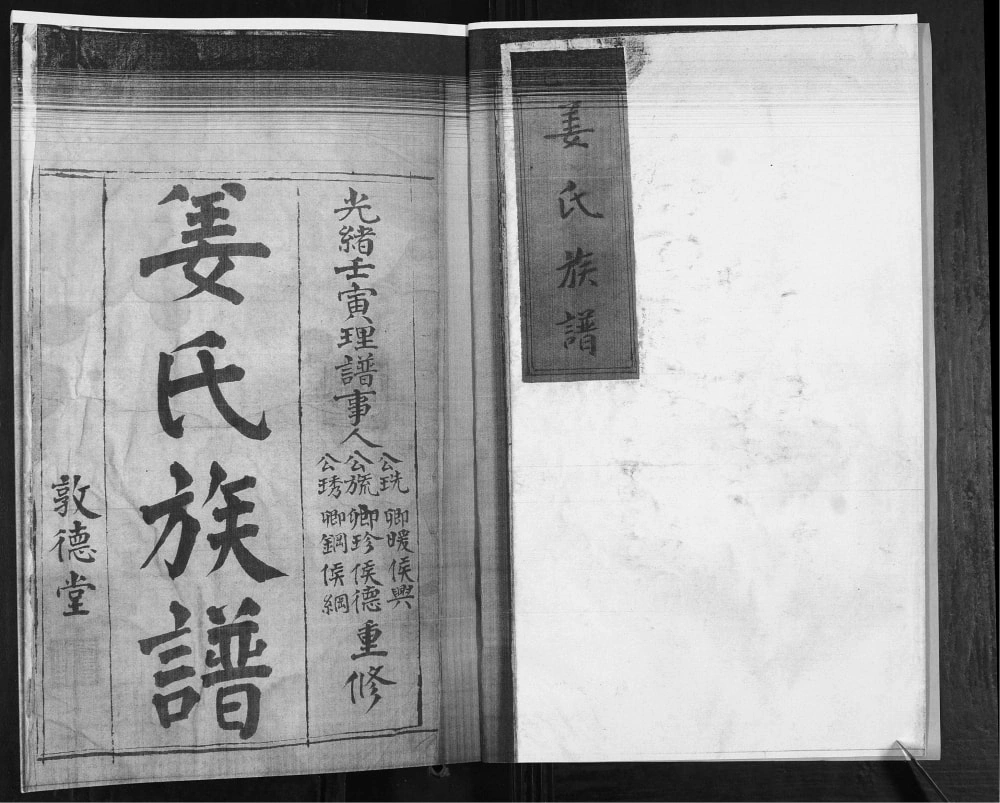 姜氏族譜
光緒壬寅理譜事人
公珖 卿暖 侯興
卿珍 侯德
公琇 卿鋼 侯綱
重修
姜氏族譜
敦德堂